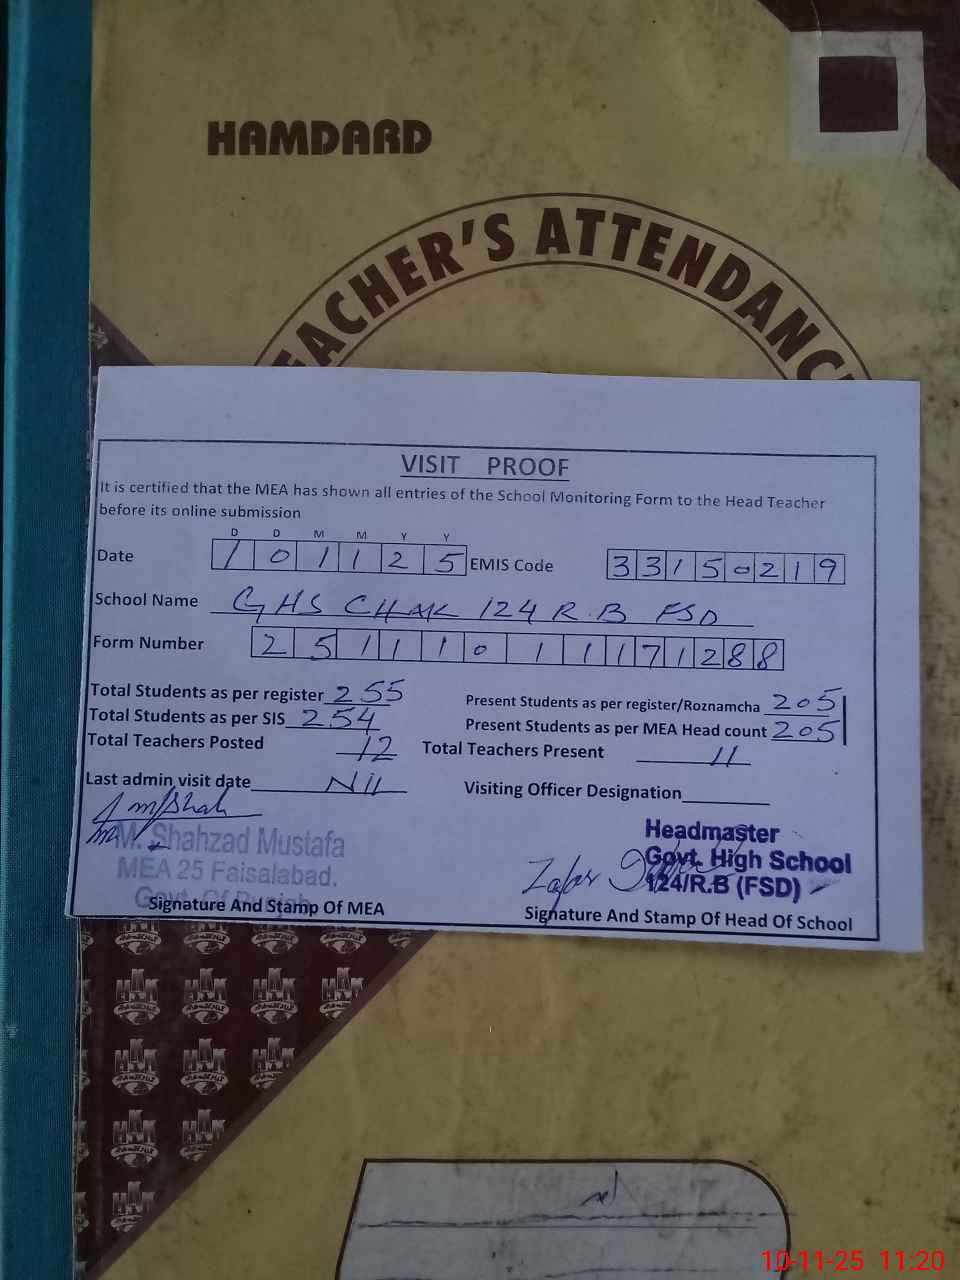 HAMDARD
TEACHER'S ATTENDANC
VISIT PROOF
It is certified that the MEA has shown all entries of the School Monitoring Form to the Head Teacher
before its online submission
D D M M Y Y
Date 1 0 1 1 2 5 EMIS Code 3 3 1 5 0 2 1 9
School Name GHS CHAK 124 R.B FSD
Form Number 2 5 1 1 1 0 1 1 1 7 1 2 8 8
Total Students as per register 255 Present Students as per register/Roznamcha 205
Total Students as per SIS 254 Present Students as per MEA Head count 205
Total Teachers Posted 12 Total Teachers Present 11
Last admin visit date Nil Visiting Officer Designation
M. Shahzad Mustafa
MEA 25 Faisalabad.
Govt. Of Punjab
Signature And Stamp Of MEA
Headmaster
Govt. High School
124/R.B (FSD)
Zafar
Signature And Stamp Of Head Of School
10-11-25 11:20